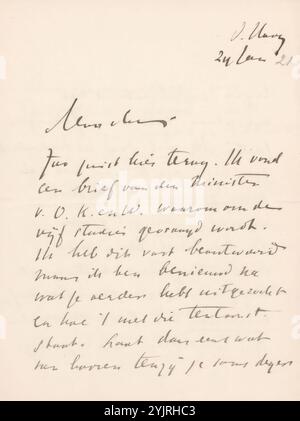 d. Haag
24 Jan 21
Juist hier terug. Ik vond
een brief van den Minister
v. O. K. en W. waarom om de
vijf studies gevraagd wordt.
Ik heb dit vast beantwoord
maar ik ben benieuwd na
wat je verder hebt uitgezocht
en hoe 't met die tentoonst.
staat. Laat dan eens wat
van hooren tenzij je soms dezer
alamy
Image ID: 2YJRHC3
www.alamy.com